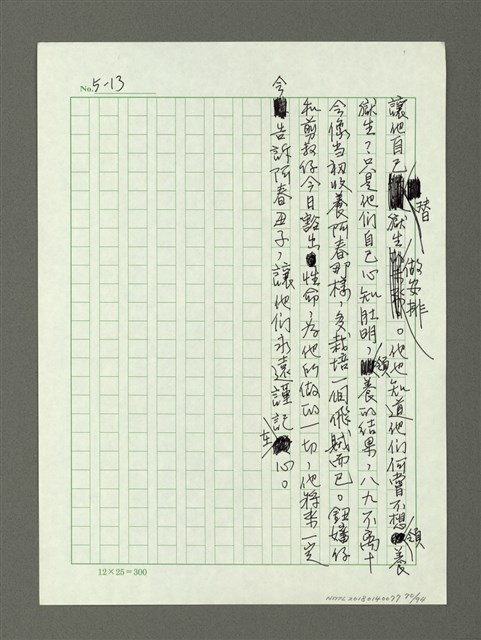 No. 5-13
讓他自己替獄生做安排。他也知道他們何嘗不想領養
獄生？只是他們自己心知肚明，領養的結果，八九不离十
会像当初收養阿春那樣，多栽培一個飛賊而已。鈕嬸仔
和剪叔仔今日豁出性命，为他所做的一切，他將来一定
会告訴阿春丑子，讓他們永遠謹記在心。
12×25=300
NMTL20180140077 90/94